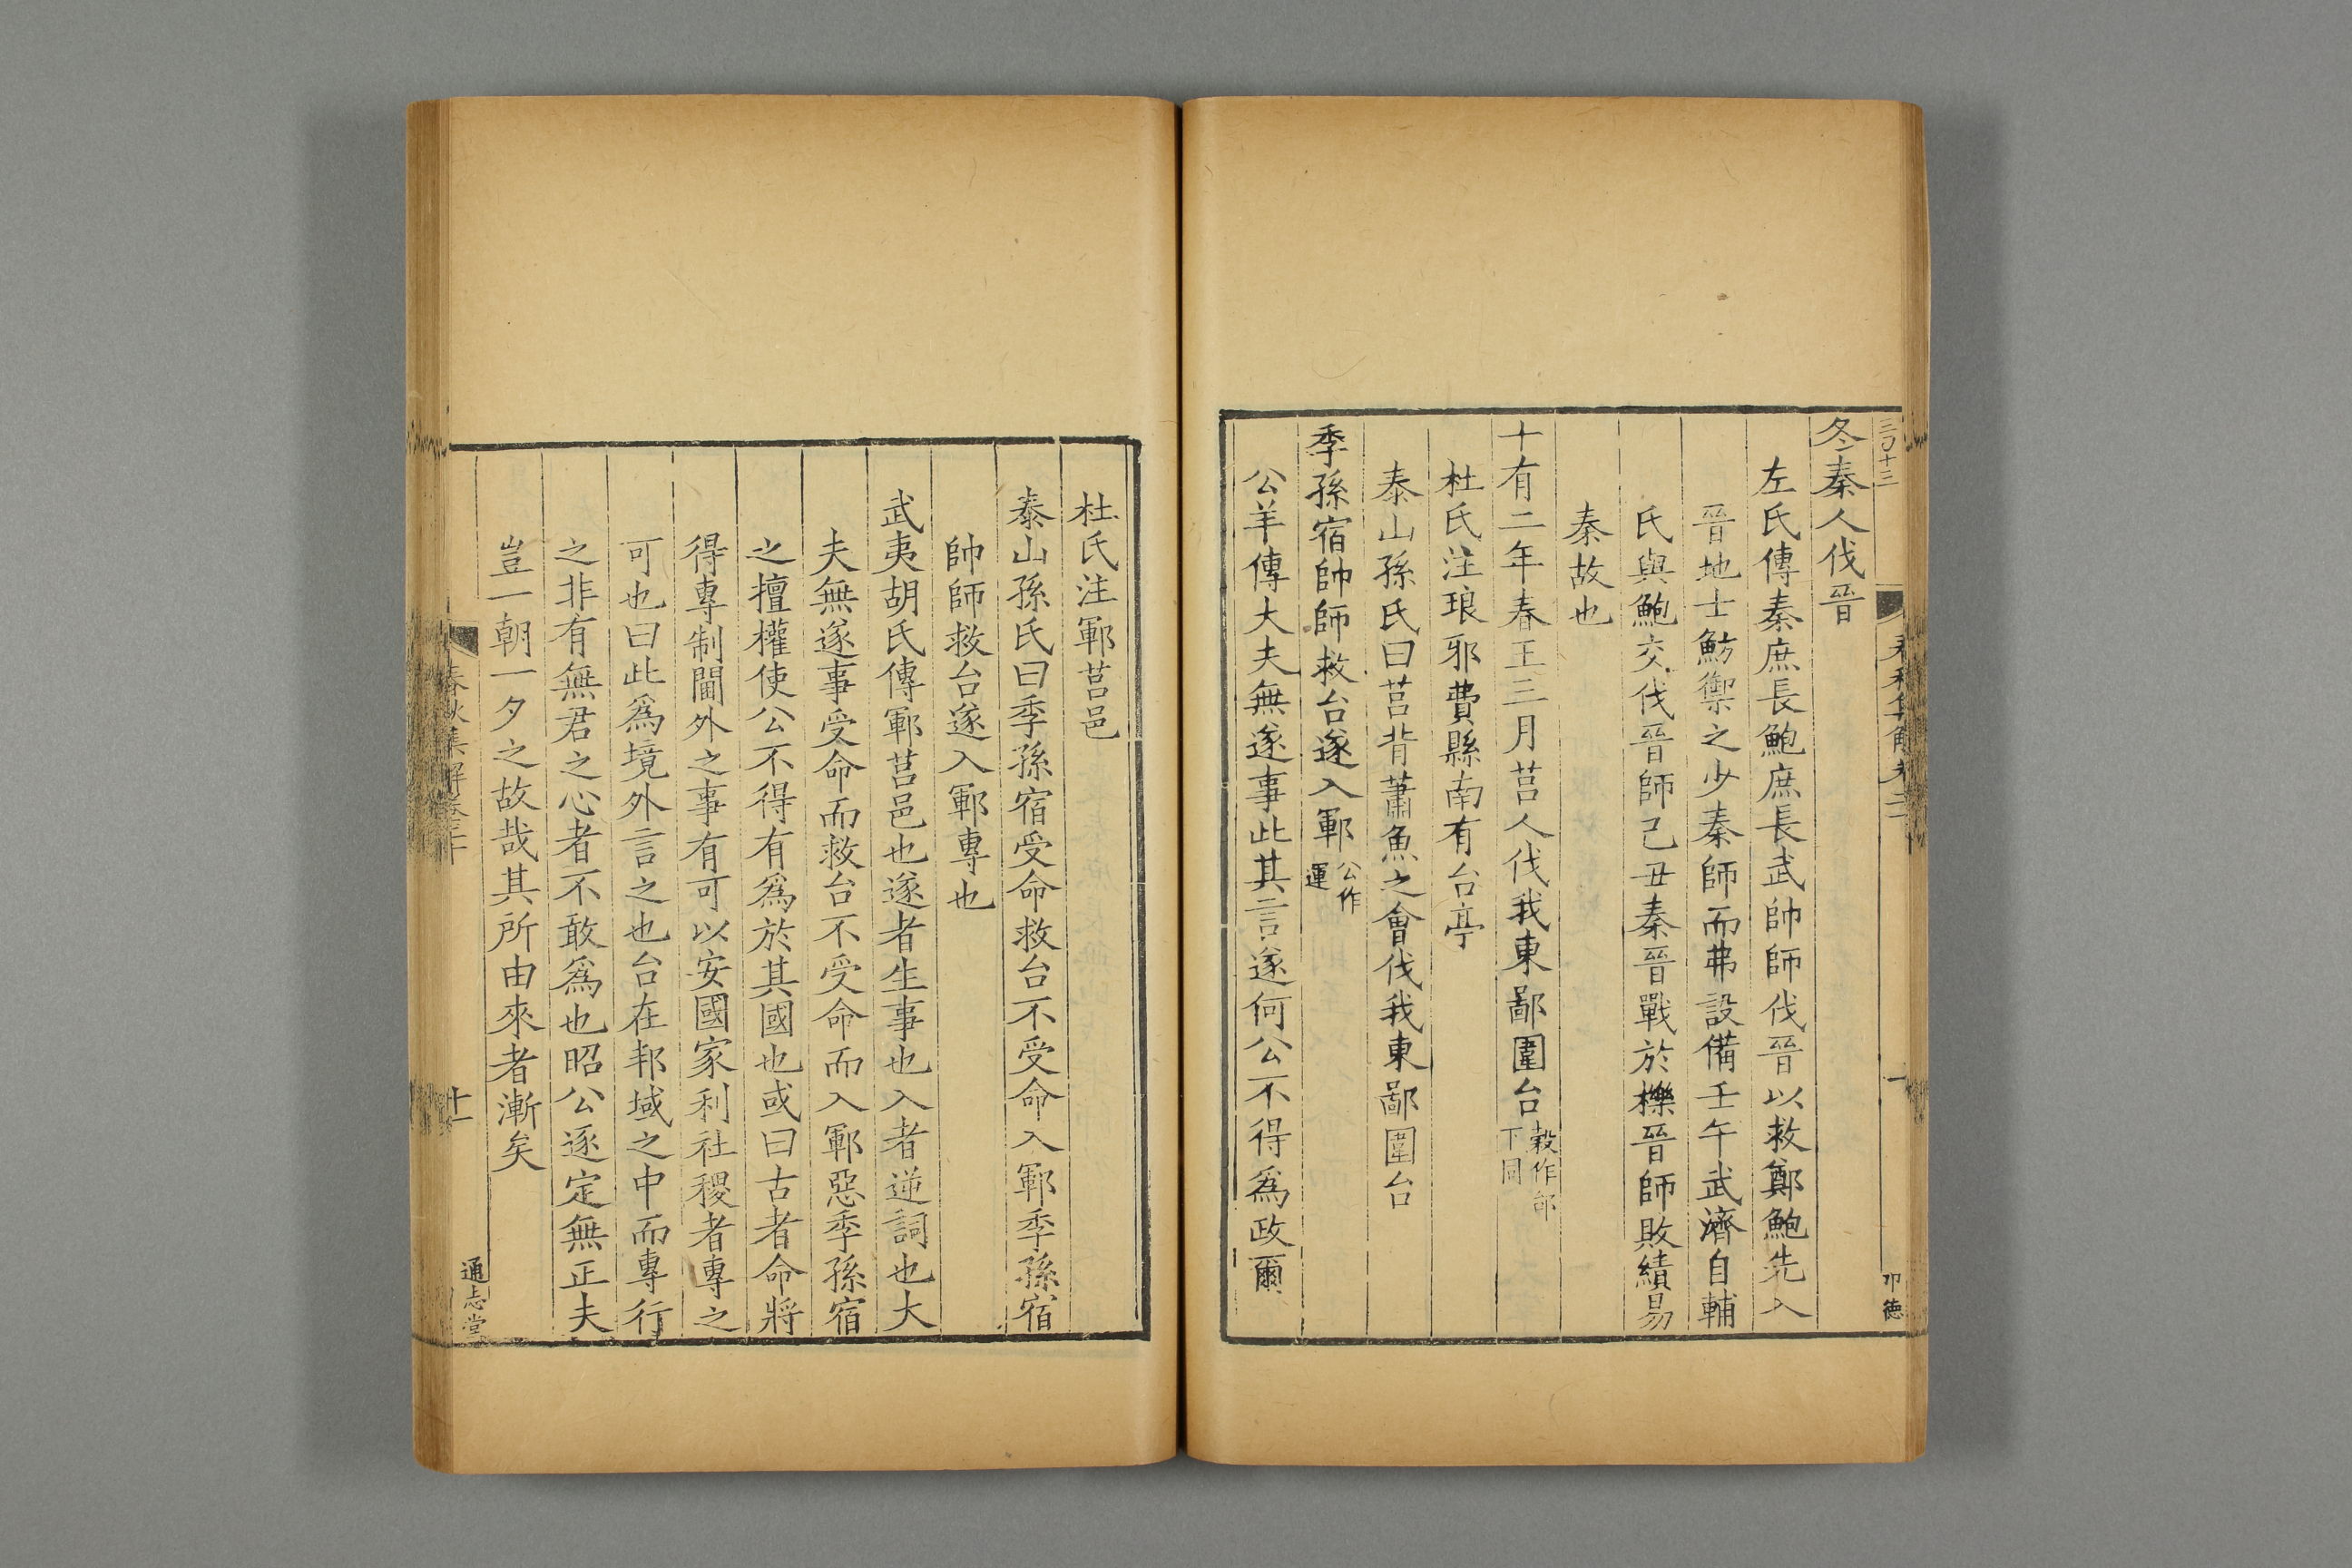 冬秦人伐晉
左氏傳秦庶長鮑庶長武帥師伐晉以救鄭鮑先入
晉地士魴禦之少秦師而弗設備壬午武濟自輔
氏與鮑交伐晉師己丑秦晉戰於櫟晉師敗績易
秦故也
十有二年春王三月莒人伐我東鄙圍台穀作邰下同
杜氏注琅邪費縣南有台亭
泰山孫氏曰莒背蕭魚之會伐我東鄙圍台
季孫宿帥師救台遂入鄆公作運
公羊傳大夫無遂事此其言遂何公不得爲政爾
杜氏注鄆莒邑
泰山孫氏曰季孫宿受命救台不受命入鄆季孫宿
帥師救台遂入鄆專也
武夷胡氏傳鄆莒邑也遂者生事也入者逆詞也大
夫無遂事受命而救台不受命而入鄆惡季孫宿
之擅權使公不得有爲於其國也或曰古者命將
得專制閫外之事有可以安國家利社稷者專之
可也曰此爲境外言之也台在邦域之中而專行
之非有無君之心者不敢爲也昭公逐定無正夫
豈一朝一夕之故哉其所由來者漸矣
春秋集解卷二十
十一
通志堂